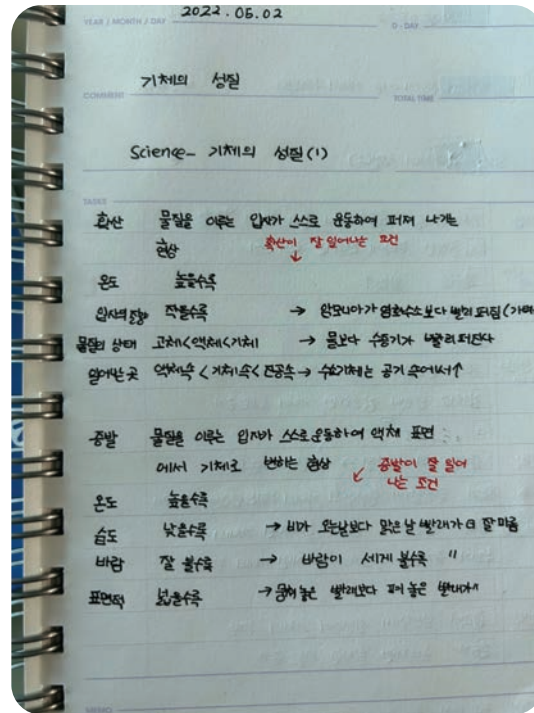 YEAR / MONTH / DAY 2022.05.02 D-DAY
기체의 성질
COMMENT TOTAL TIME
Science- 기체의 성질(1)
TASKS
확산 물질을 이루는 입자가 스스로 운동하여 퍼져 나가는
현상 확산이 잘 일어나는 조건
온도 높을수록
입자의 질량 작을수록 → 암모니아가 염화수소보다 빨리 퍼짐
물질의 상태 고체<액체<기체 → 물보다 수증기가 빨리 퍼진다
일어나는 곳 액체속<기체속<진공속→ 공기 속에서↑
증발 물질을 이루는 입자가 스스로 운동하여 액체 표면
에서 기체로 변하는 현상 증발이 잘 일어
나는 조건
온도 높을수록
습도 낮을수록 → 비가 오는날보다 맑은날 빨래가 잘 마름
바람 잘 불수록 → 바람이 세게 불수록 "
표면적 넓을수록 → 빨래보다 펴 놓은 빨래가
MEMO